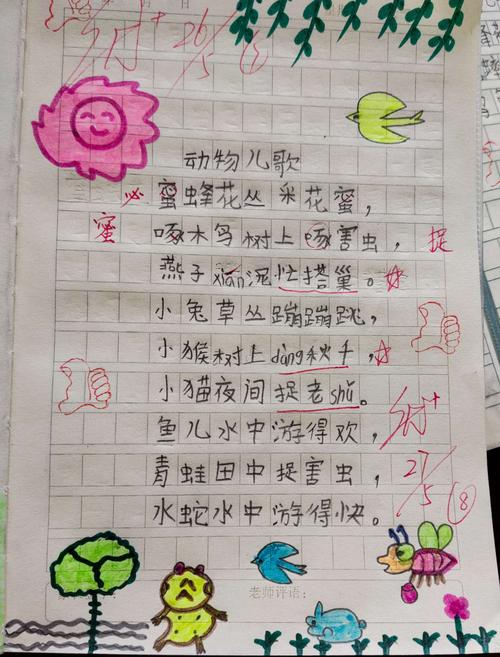 26/5
动物儿歌
必 蜜蜂花丛采花蜜，
蜜 啄木鸟树上啄害虫， 捉
燕子xián泥忙搭巢。
小兔草丛蹦蹦跳，
小猴树上dàng秋千，
小猫夜间捉老shǔ。
鱼儿水中游得欢，
青蛙田中捉害虫，
27/5 8
水蛇水中游得快。
老师评语：